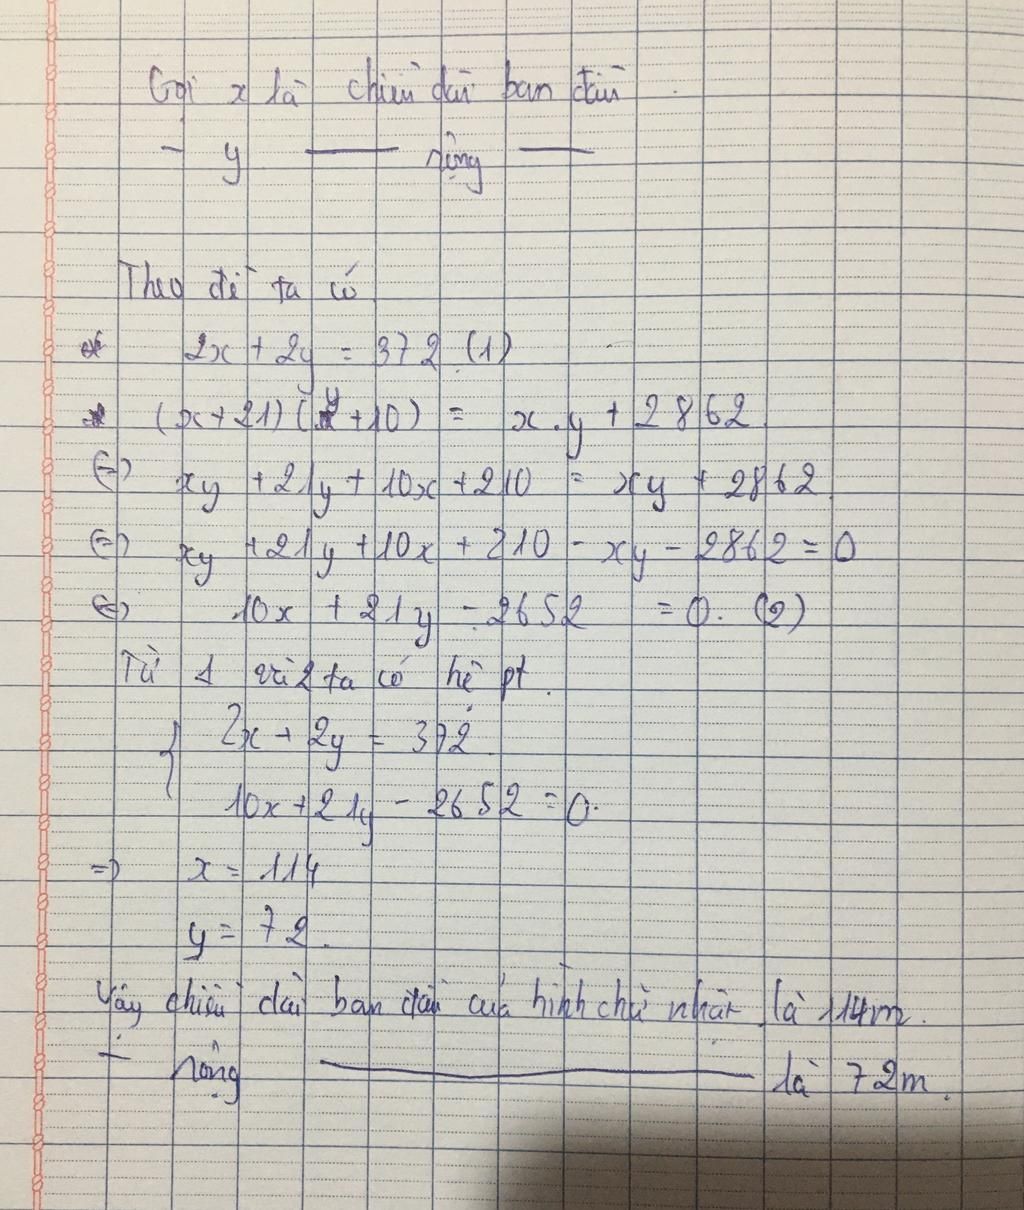 Gọi x là chiều dài ban đầu
- y —— rộng ——
Theo đề ta có
* 2x + 2y = 372 (1)
* (x+21)(y+10) = x.y + 2862
(=) xy + 21y + 10x + 210 = xy + 2862
(=) xy + 21y + 10x + 210 - xy - 2862 = 0
(=) 10x + 21y - 2652 = 0. (2)
Từ 1 và 2 ta có hệ pt.
{ 2x + 2y = 372
10x + 21y - 2652 = 0.
=) x = 114
y = 72.
Vậy chiều dài ban đầu của hình chữ nhật là 114m.
- rộng —— là 72m.